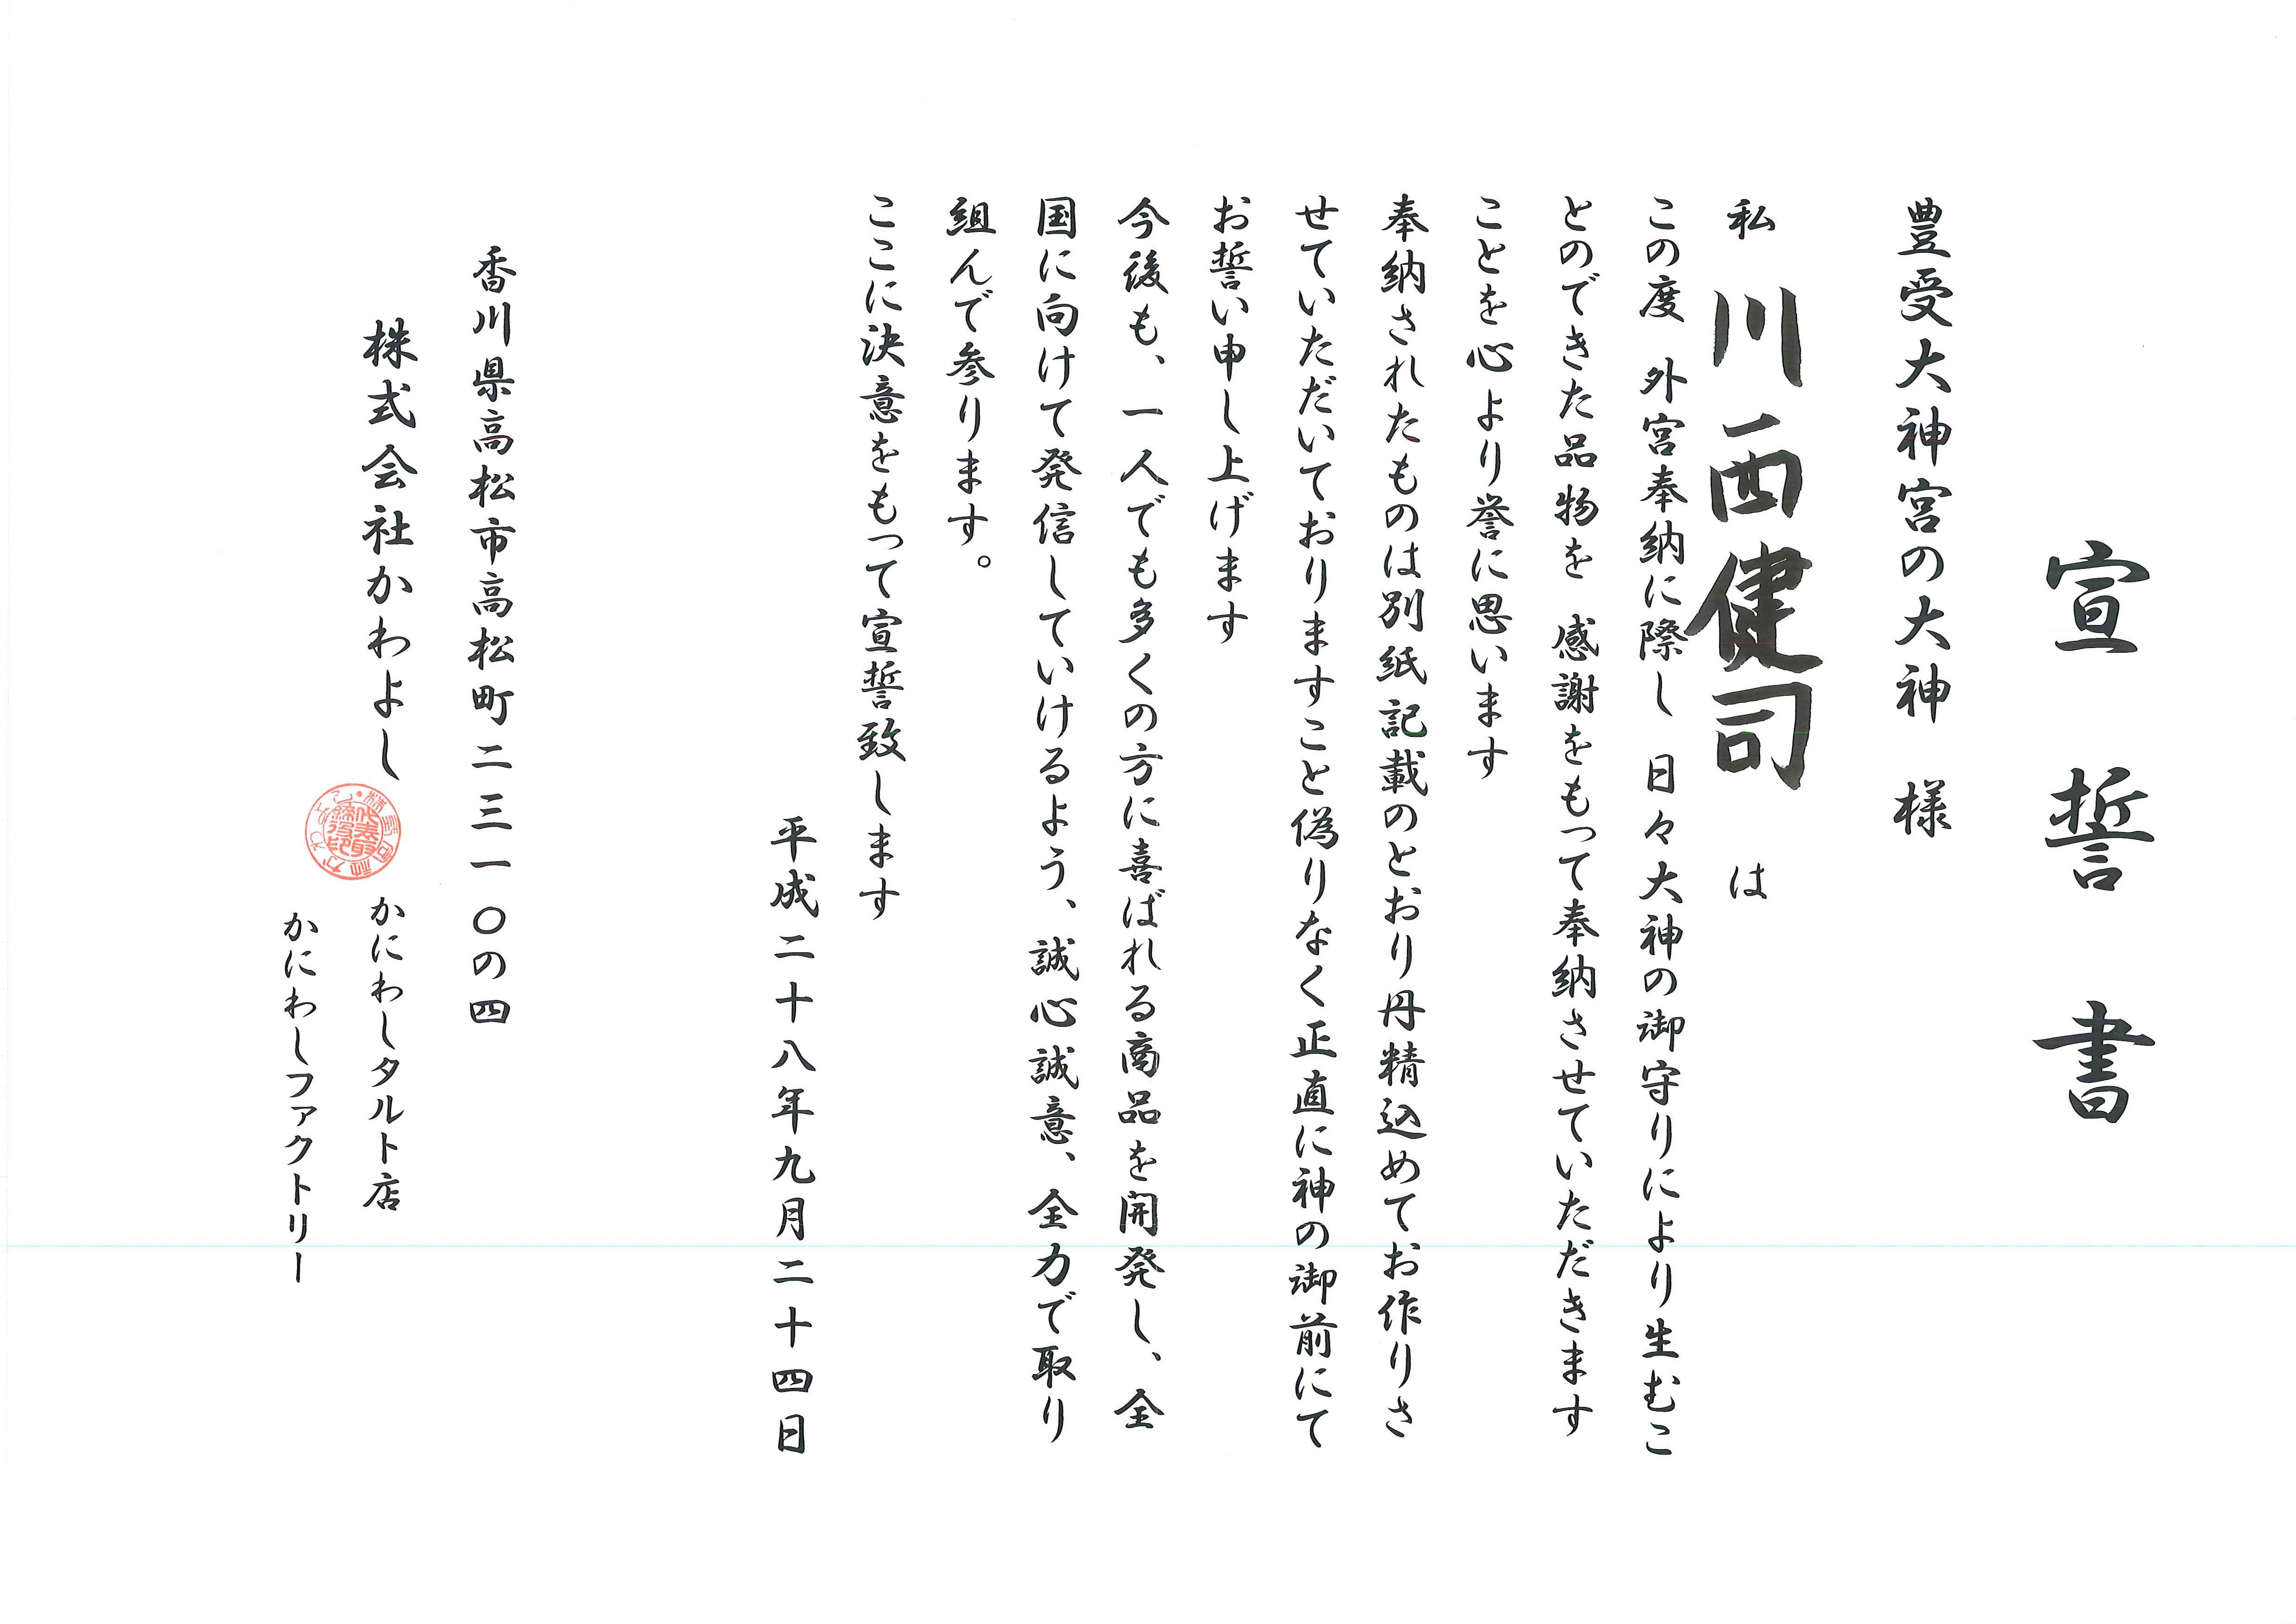 宣誓書
豊受大神宮の大神 様
私 川西健司 は
この度 外宮奉納に際し 日々大神の御守りにより生むこ
とのできた品物を 感謝をもって奉納させていただきます
ことを心より誉に思います
奉納されたものは別紙記載のとおり丹精込めてお作りさ
せていただいておりますこと偽りなく正直に神の御前にて
お誓い申し上げます
今後も、一人でも多くの方に喜ばれる商品を開発し、全
国に向けて発信していけるよう、誠心誠意、全力で取り
組んで参ります。
ここに決意をもって宣誓致します
平成二十八年九月二十四日
香川県高松市高松町二三一〇の四
株式会社かわよし
代表取締役印
かにわしタルト店
かにわしファクトリー